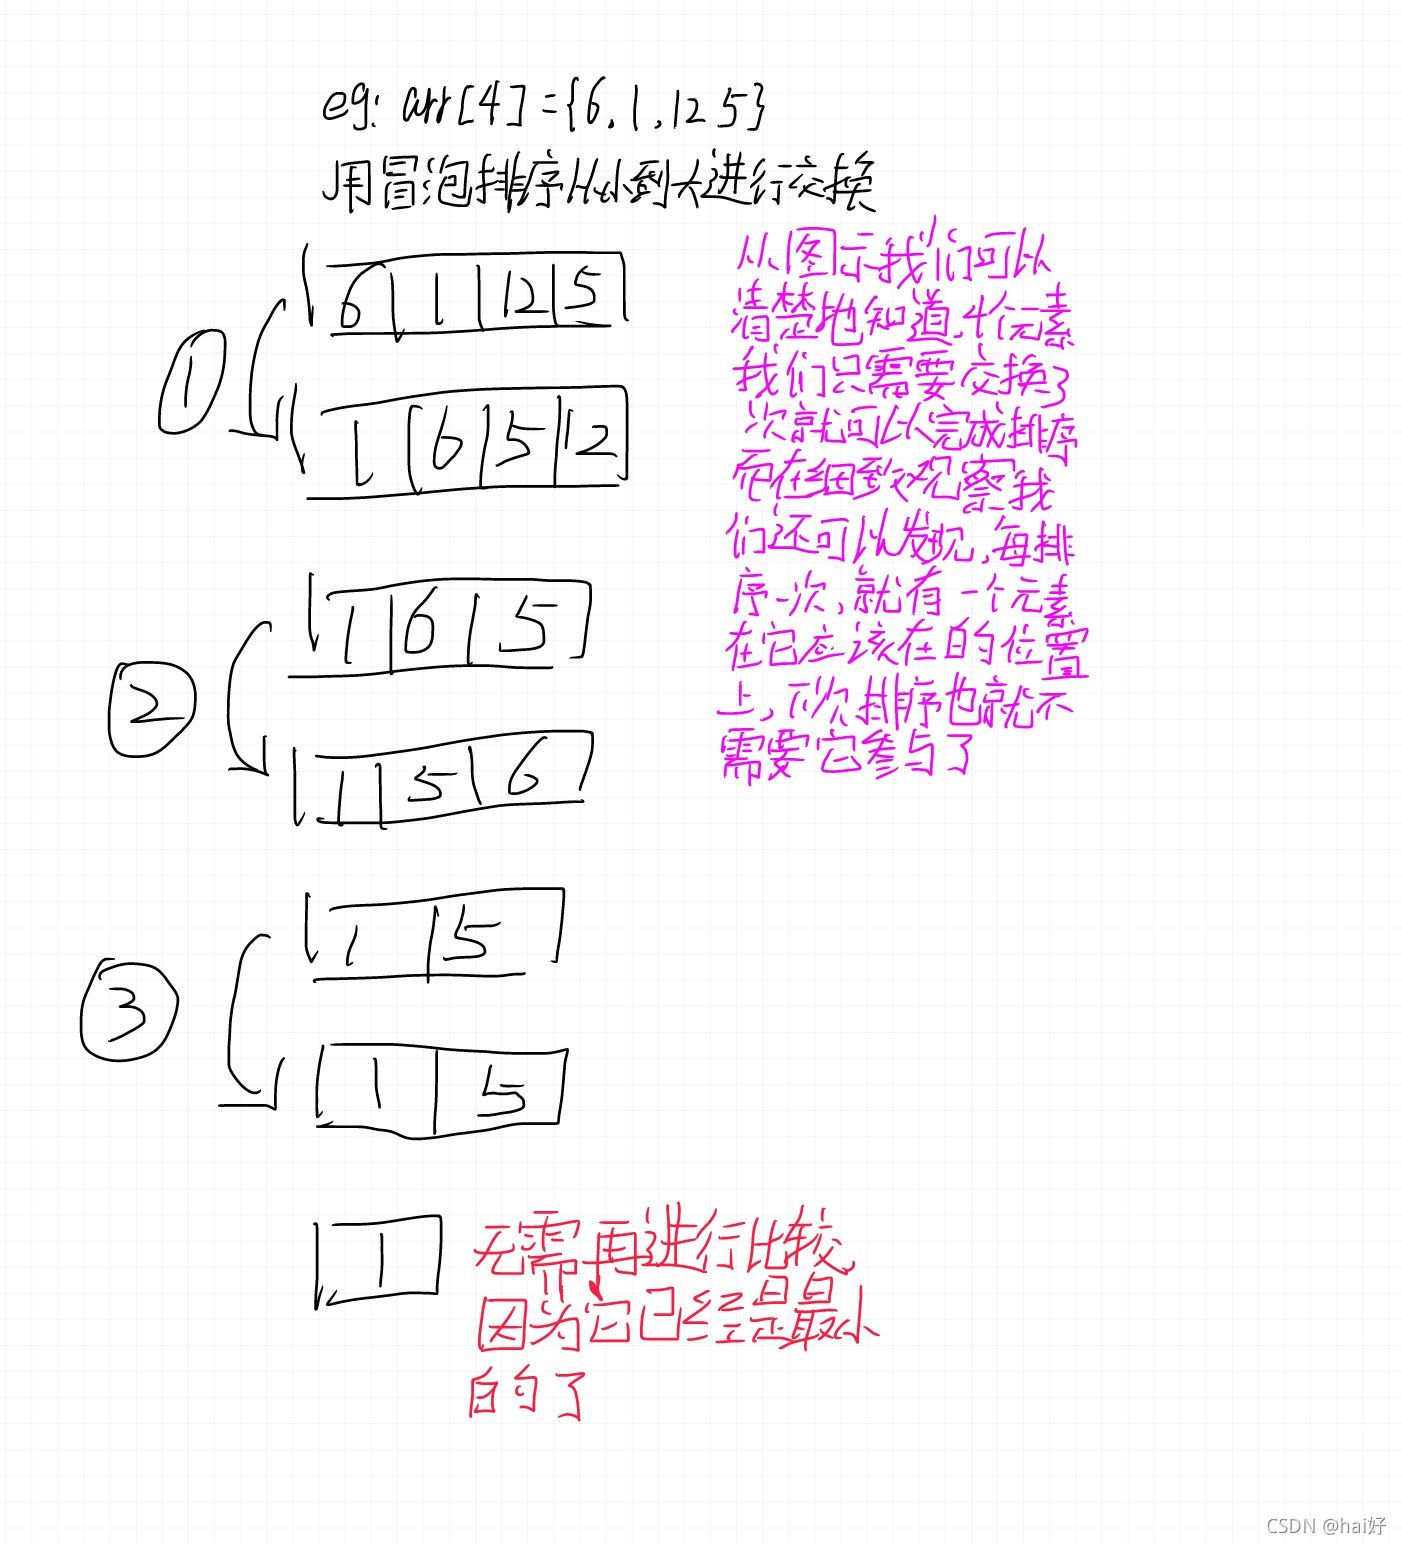 eg: arr[4]={6,1,12 5}
用冒泡排序从小到大进行交换
从图示我们可以
清楚地知道,4个元素
我们只需要交换3
次就可以完成排序
而在细致观察我
们还可以发现,每排
序一次,就有一个元素
在它应该在的位置
上,下次排序也就不
需要它参与了
①
6 1 12 5
1 6 5 12
②
1 6 5
1 5 6
③
1 5
1 5
1
无需再进行比较,
因为它已经是最小
的了
CSDN @hai好